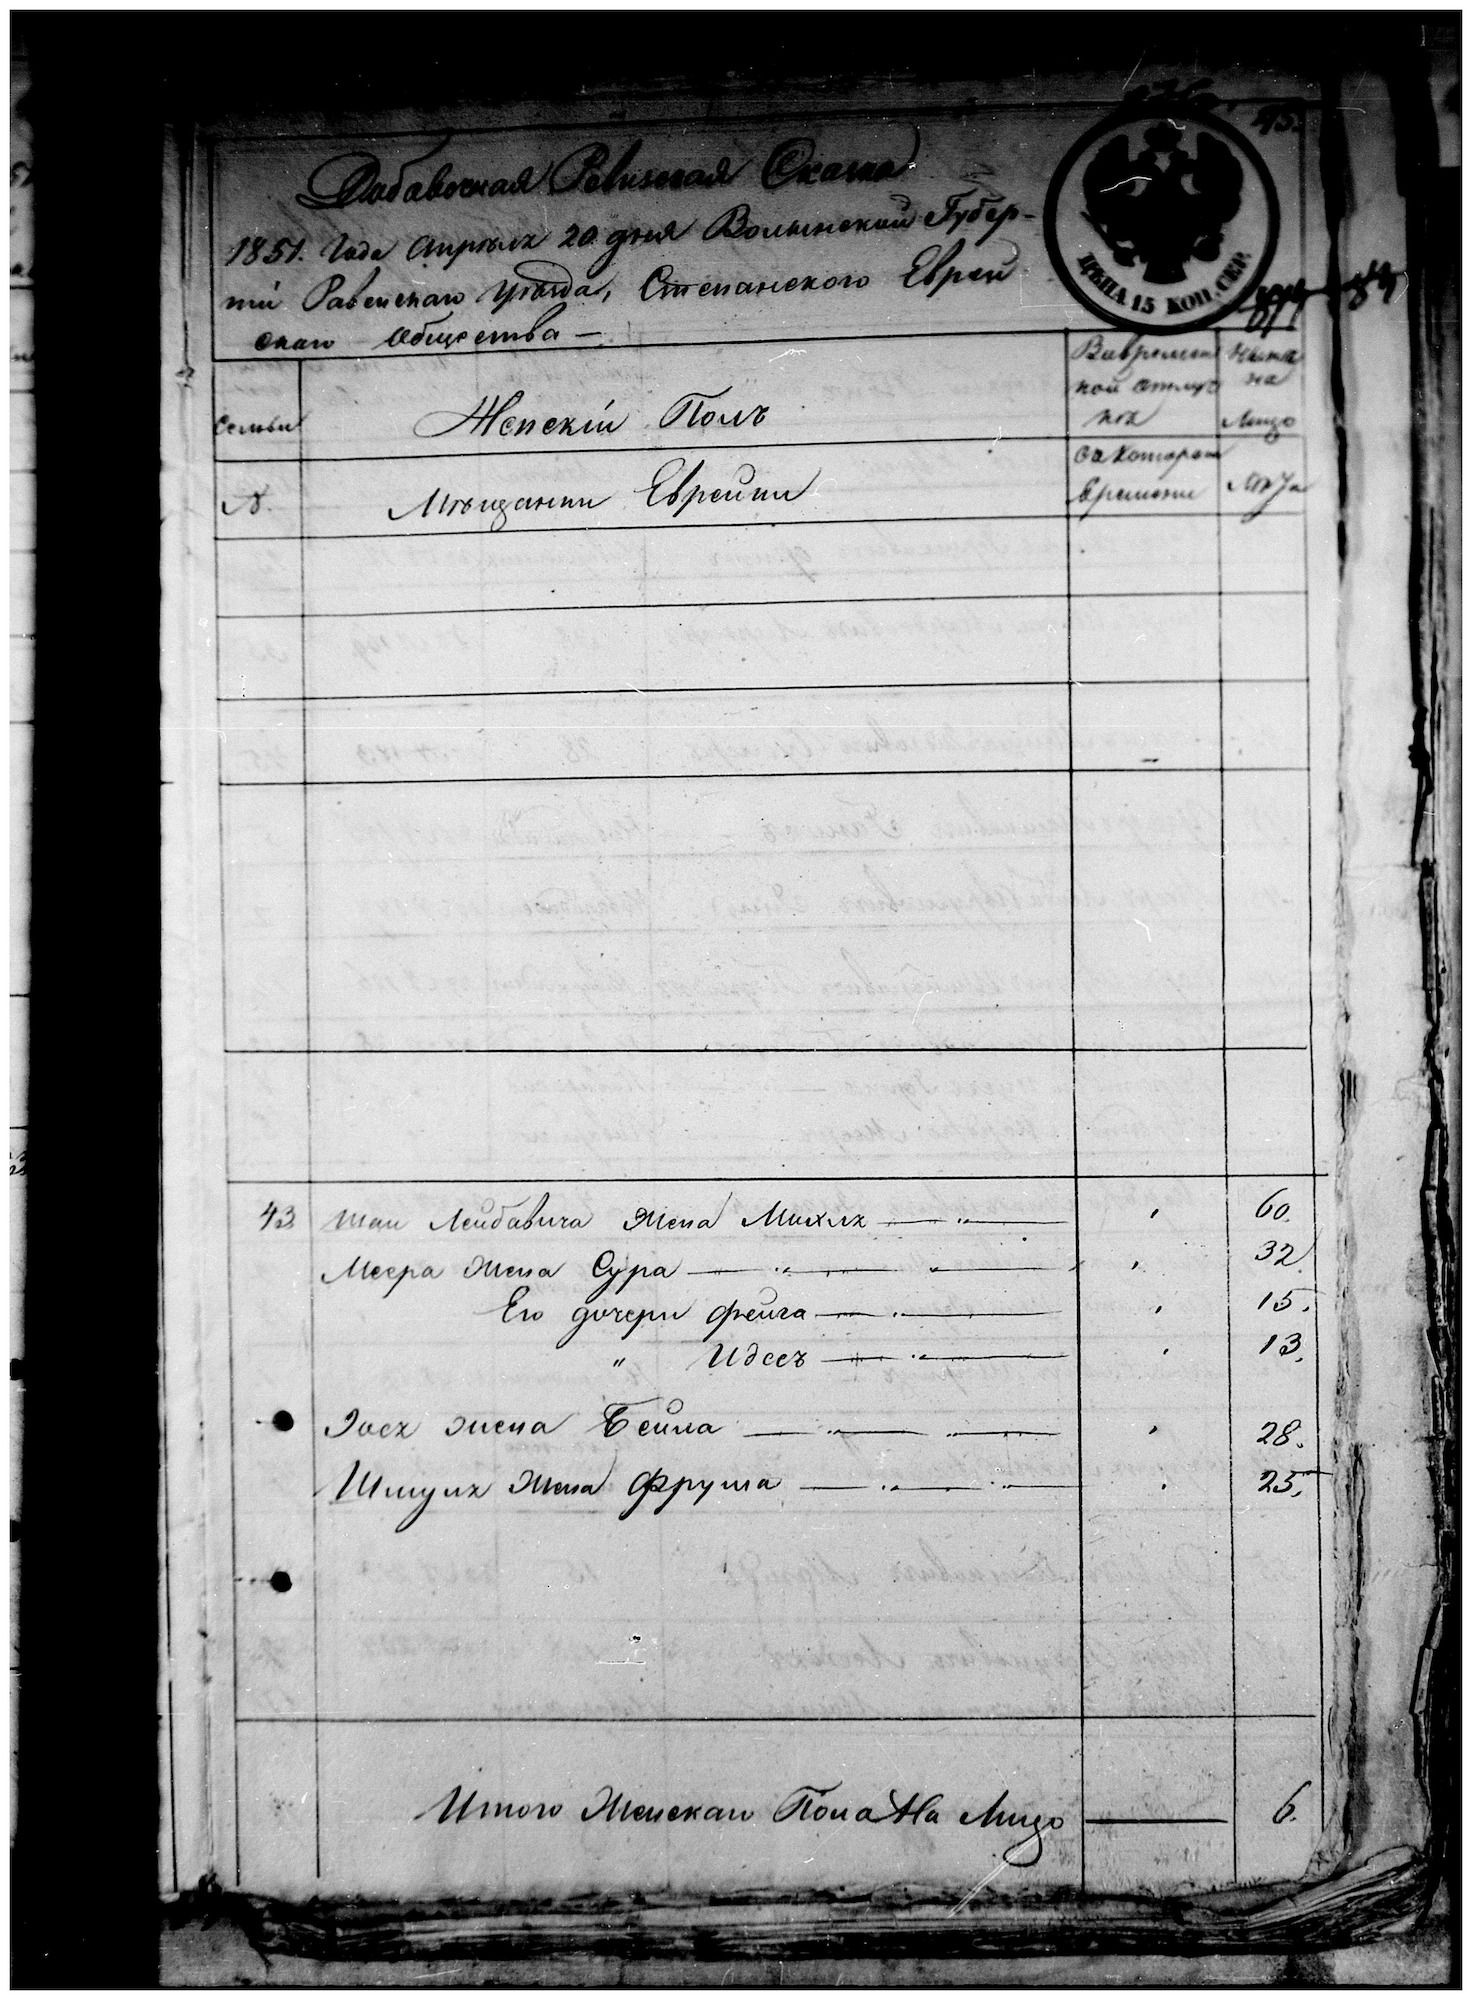 45.
Добавочная Ревизская Сказка
1851. Года Апреля 20 дня Волынской Губер-
нiи Равенскаго уѣзда, Степанского Еврей
скаго Общества —
ЦѢНА 15 КОП. СЕР.
Семьи
Женскiй Полъ
Вовремен
ной отлуч
ки
Ныне
на
Лицо
№.
Мѣщанки Еврейки
Скотораго
Времени
Лѣта
43 Шаи Лейбовича Жена Михля 60.
Меера Жена Сура 32.
Его дочери Фейга 15.
" Идесъ 13.
Жена Бейла 28.
Шмуля Жена Фрума 25.
Итого Женскаго Пола На Лицо 6.